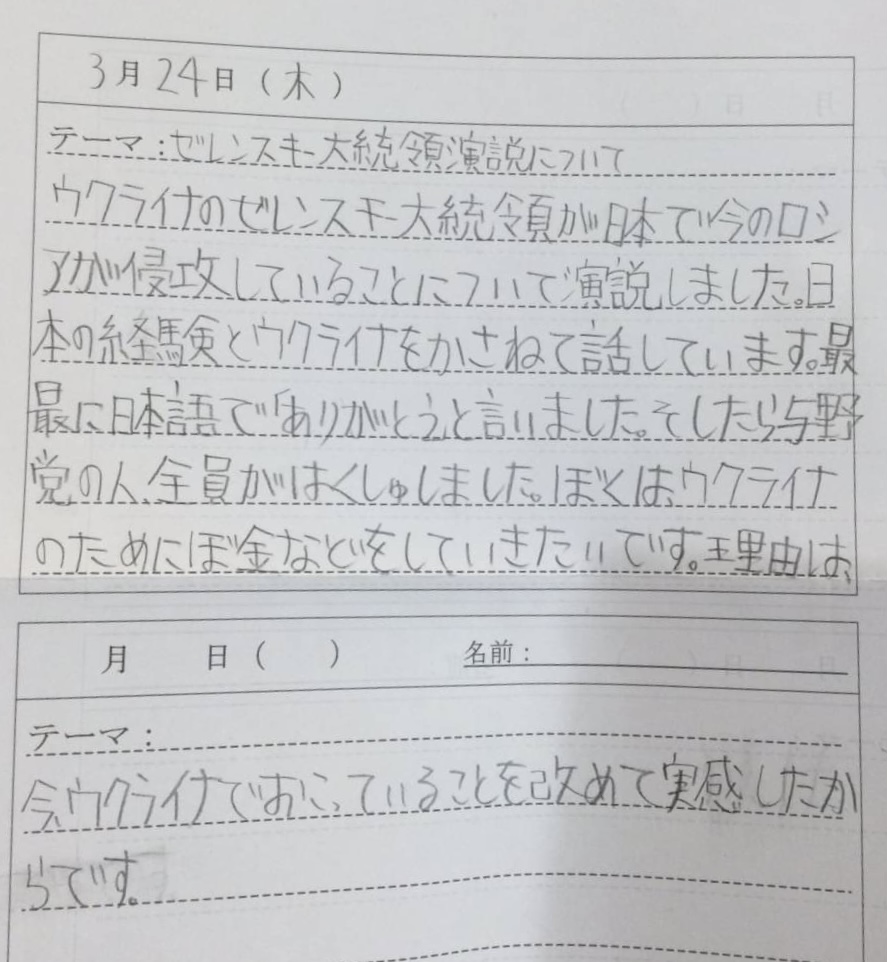 3月24日(木)
テーマ:ゼレンスキー大統領演説について
ウクライナのゼレンスキー大統領が日本で今のロシ
アが侵攻していることについて演説しました。日
本の経験とウクライナをかさねて話しています。最
最に日本語で「ありがとう」と言いました。そしたら与野
党の人、全員がはくしゅしました。ぼくは、ウクライナ
のためにぼ金などをしていきたいです。理由は、
月 日( ) 名前:
テーマ:
今、ウクライナでおこっていることを改めて実感したか
らです。